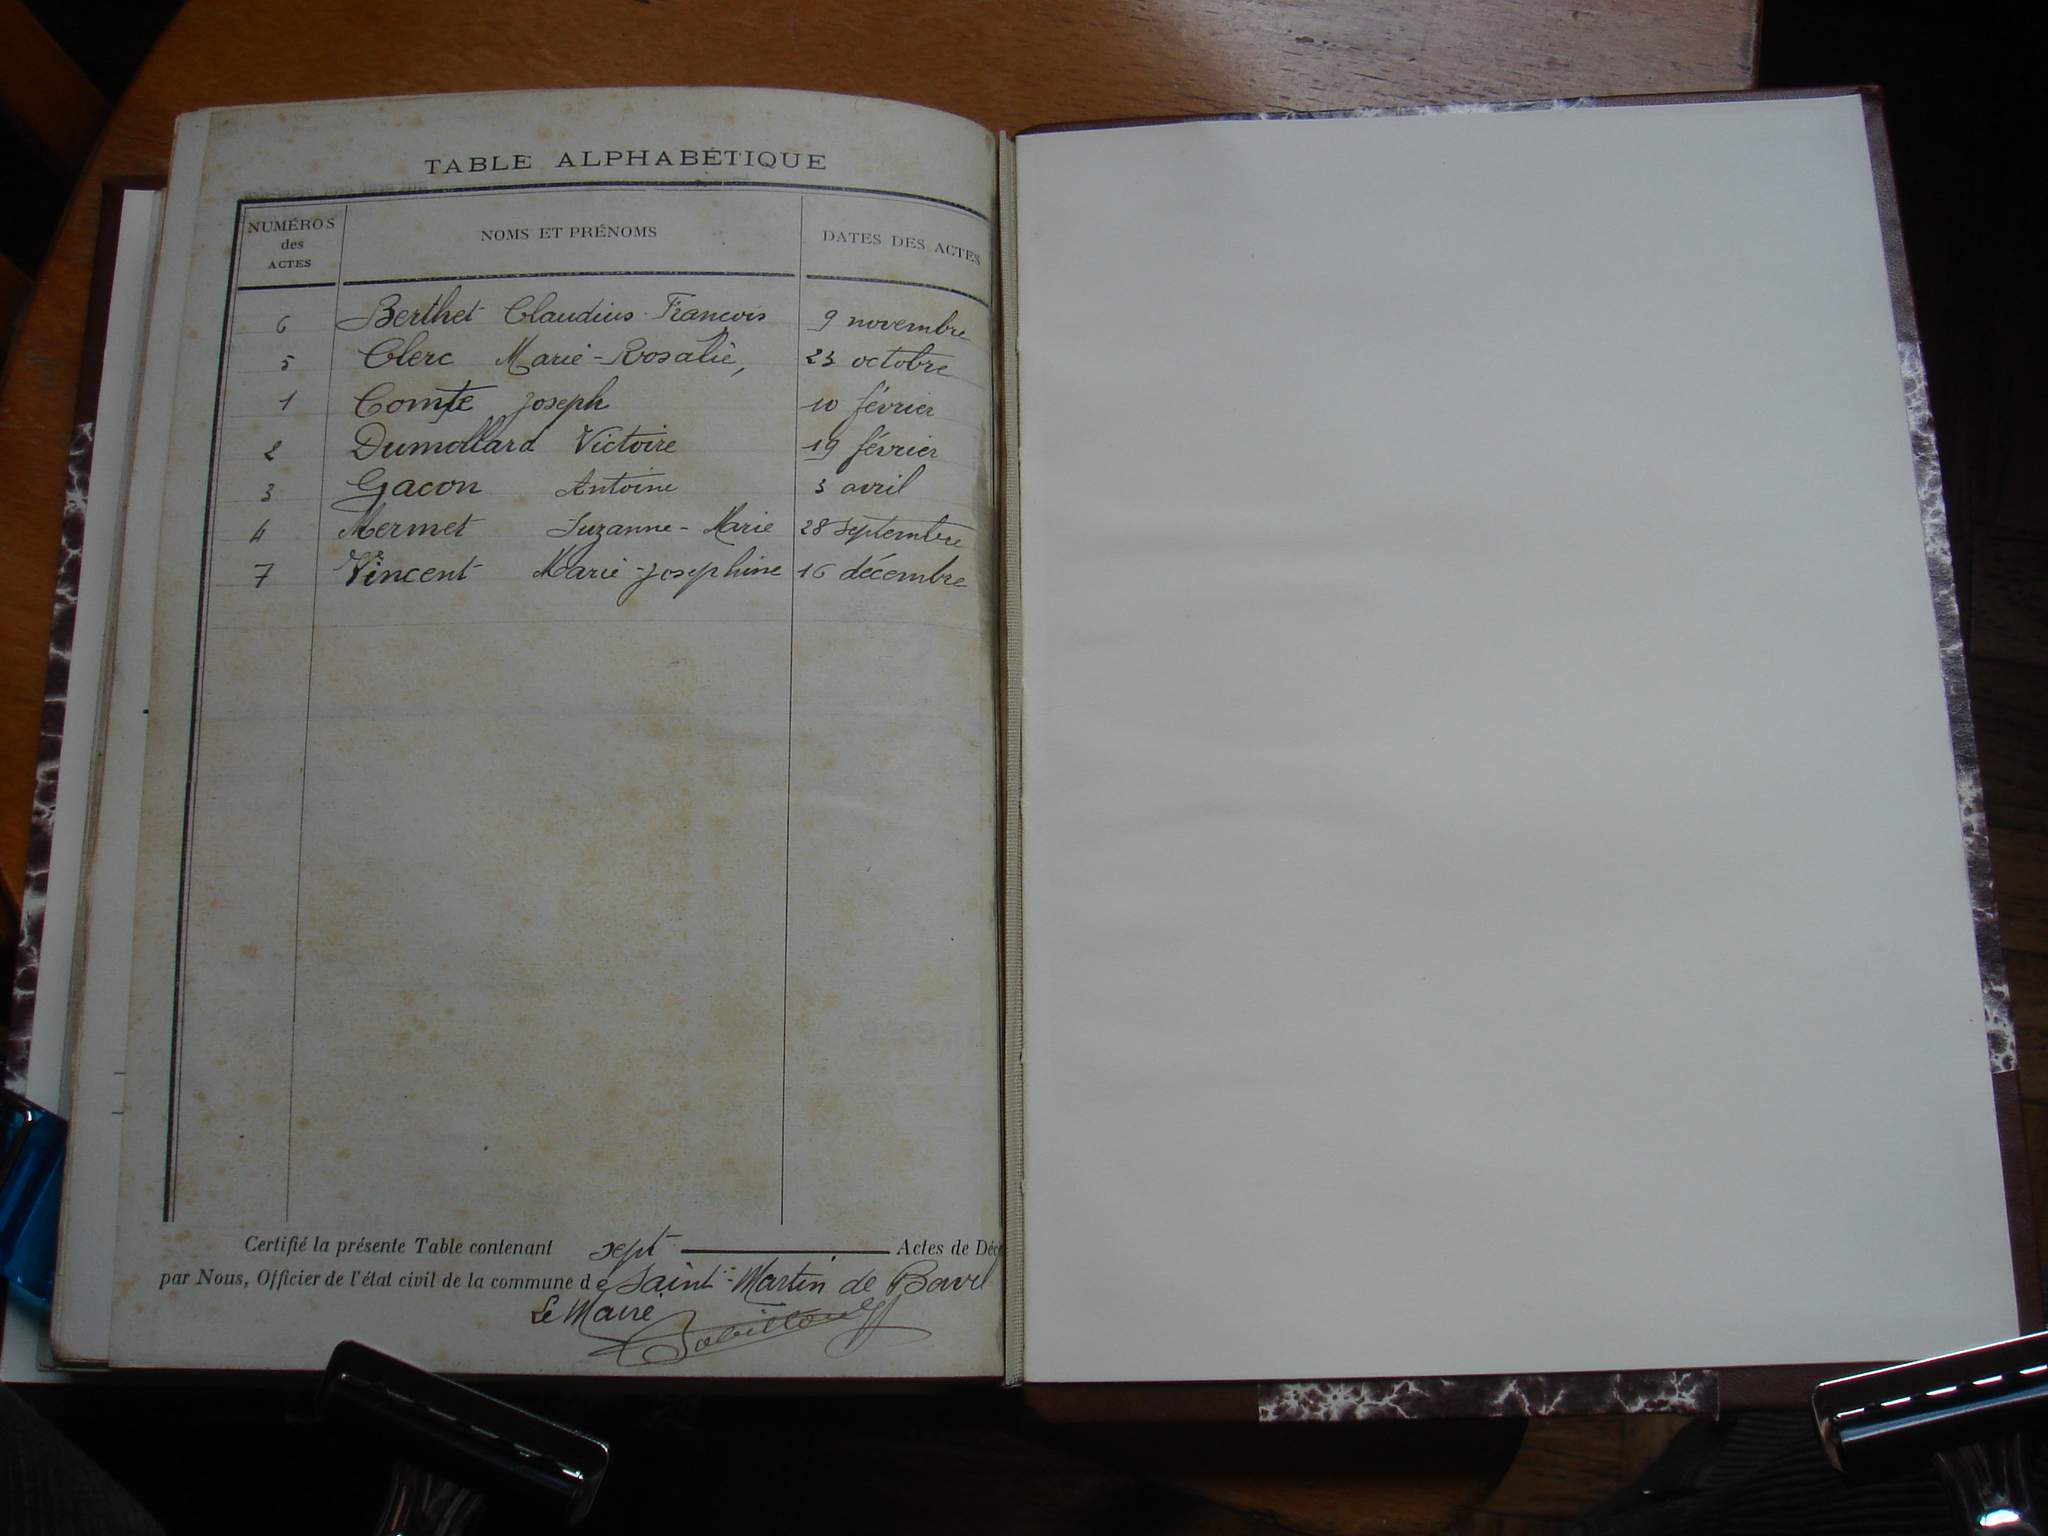 TABLE ALPHABÉTIQUE
NUMÉROS des ACTES
NOMS ET PRÉNOMS
DATES DES ACTES
6 Berthet Claudius-François 9 novembre
5 Clerc Marie-Rosalie, 23 octobre
1 Comte Joseph 10 février
2 Dumollard Victoire 19 février
3 Gacon Antoine 3 avril
4 Mermet Suzanne-Marie 28 septembre
7 Vincent Marie-Josephine 16 décembre
Certifié la présente Table contenant sept Actes de Déc
par Nous, Officier de l'état civil de la commune de Saint-Martin de Bavel
Le Maire